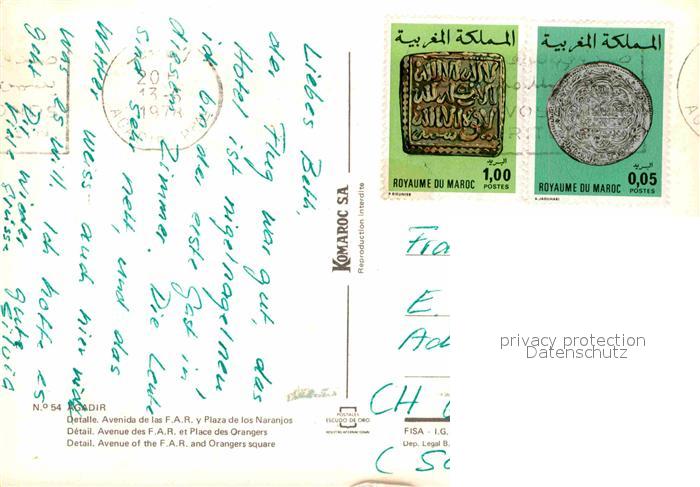 Liebes Beth,
der Flug war gut, das
Hotel ist nigelnagelneu
ich bin der erste Gast in
diesem Zimmer. Die Leute
sind sehr nett, und das
Wetter weiss auch hier nicht
was es will. Ich hoffe es
geht Dir wieder gut
Viele Grüsse Silvia
20
13
1978
المملكة المغربية
البريد
1,00
ROYAUME DU MAROC POSTES
المملكة المغربية
البريد
0,05
ROYAUME DU MAROC POSTES
KOMAROC S.A.
Reproduction interdite
Fra
E.
Ad
CH
(S
privacy protection
Datenschutz
N.º 54 AGADIR
Detalle. Avenida de las F.A.R. y Plaza de los Naranjos
Détail. Avenue des F.A.R. et Place des Orangers
Detail. Avenue of the F.A.R. and Orangers square
POSTALES
ESCUDO DE ORO
FISA - I.G.
Dep. Legal B.